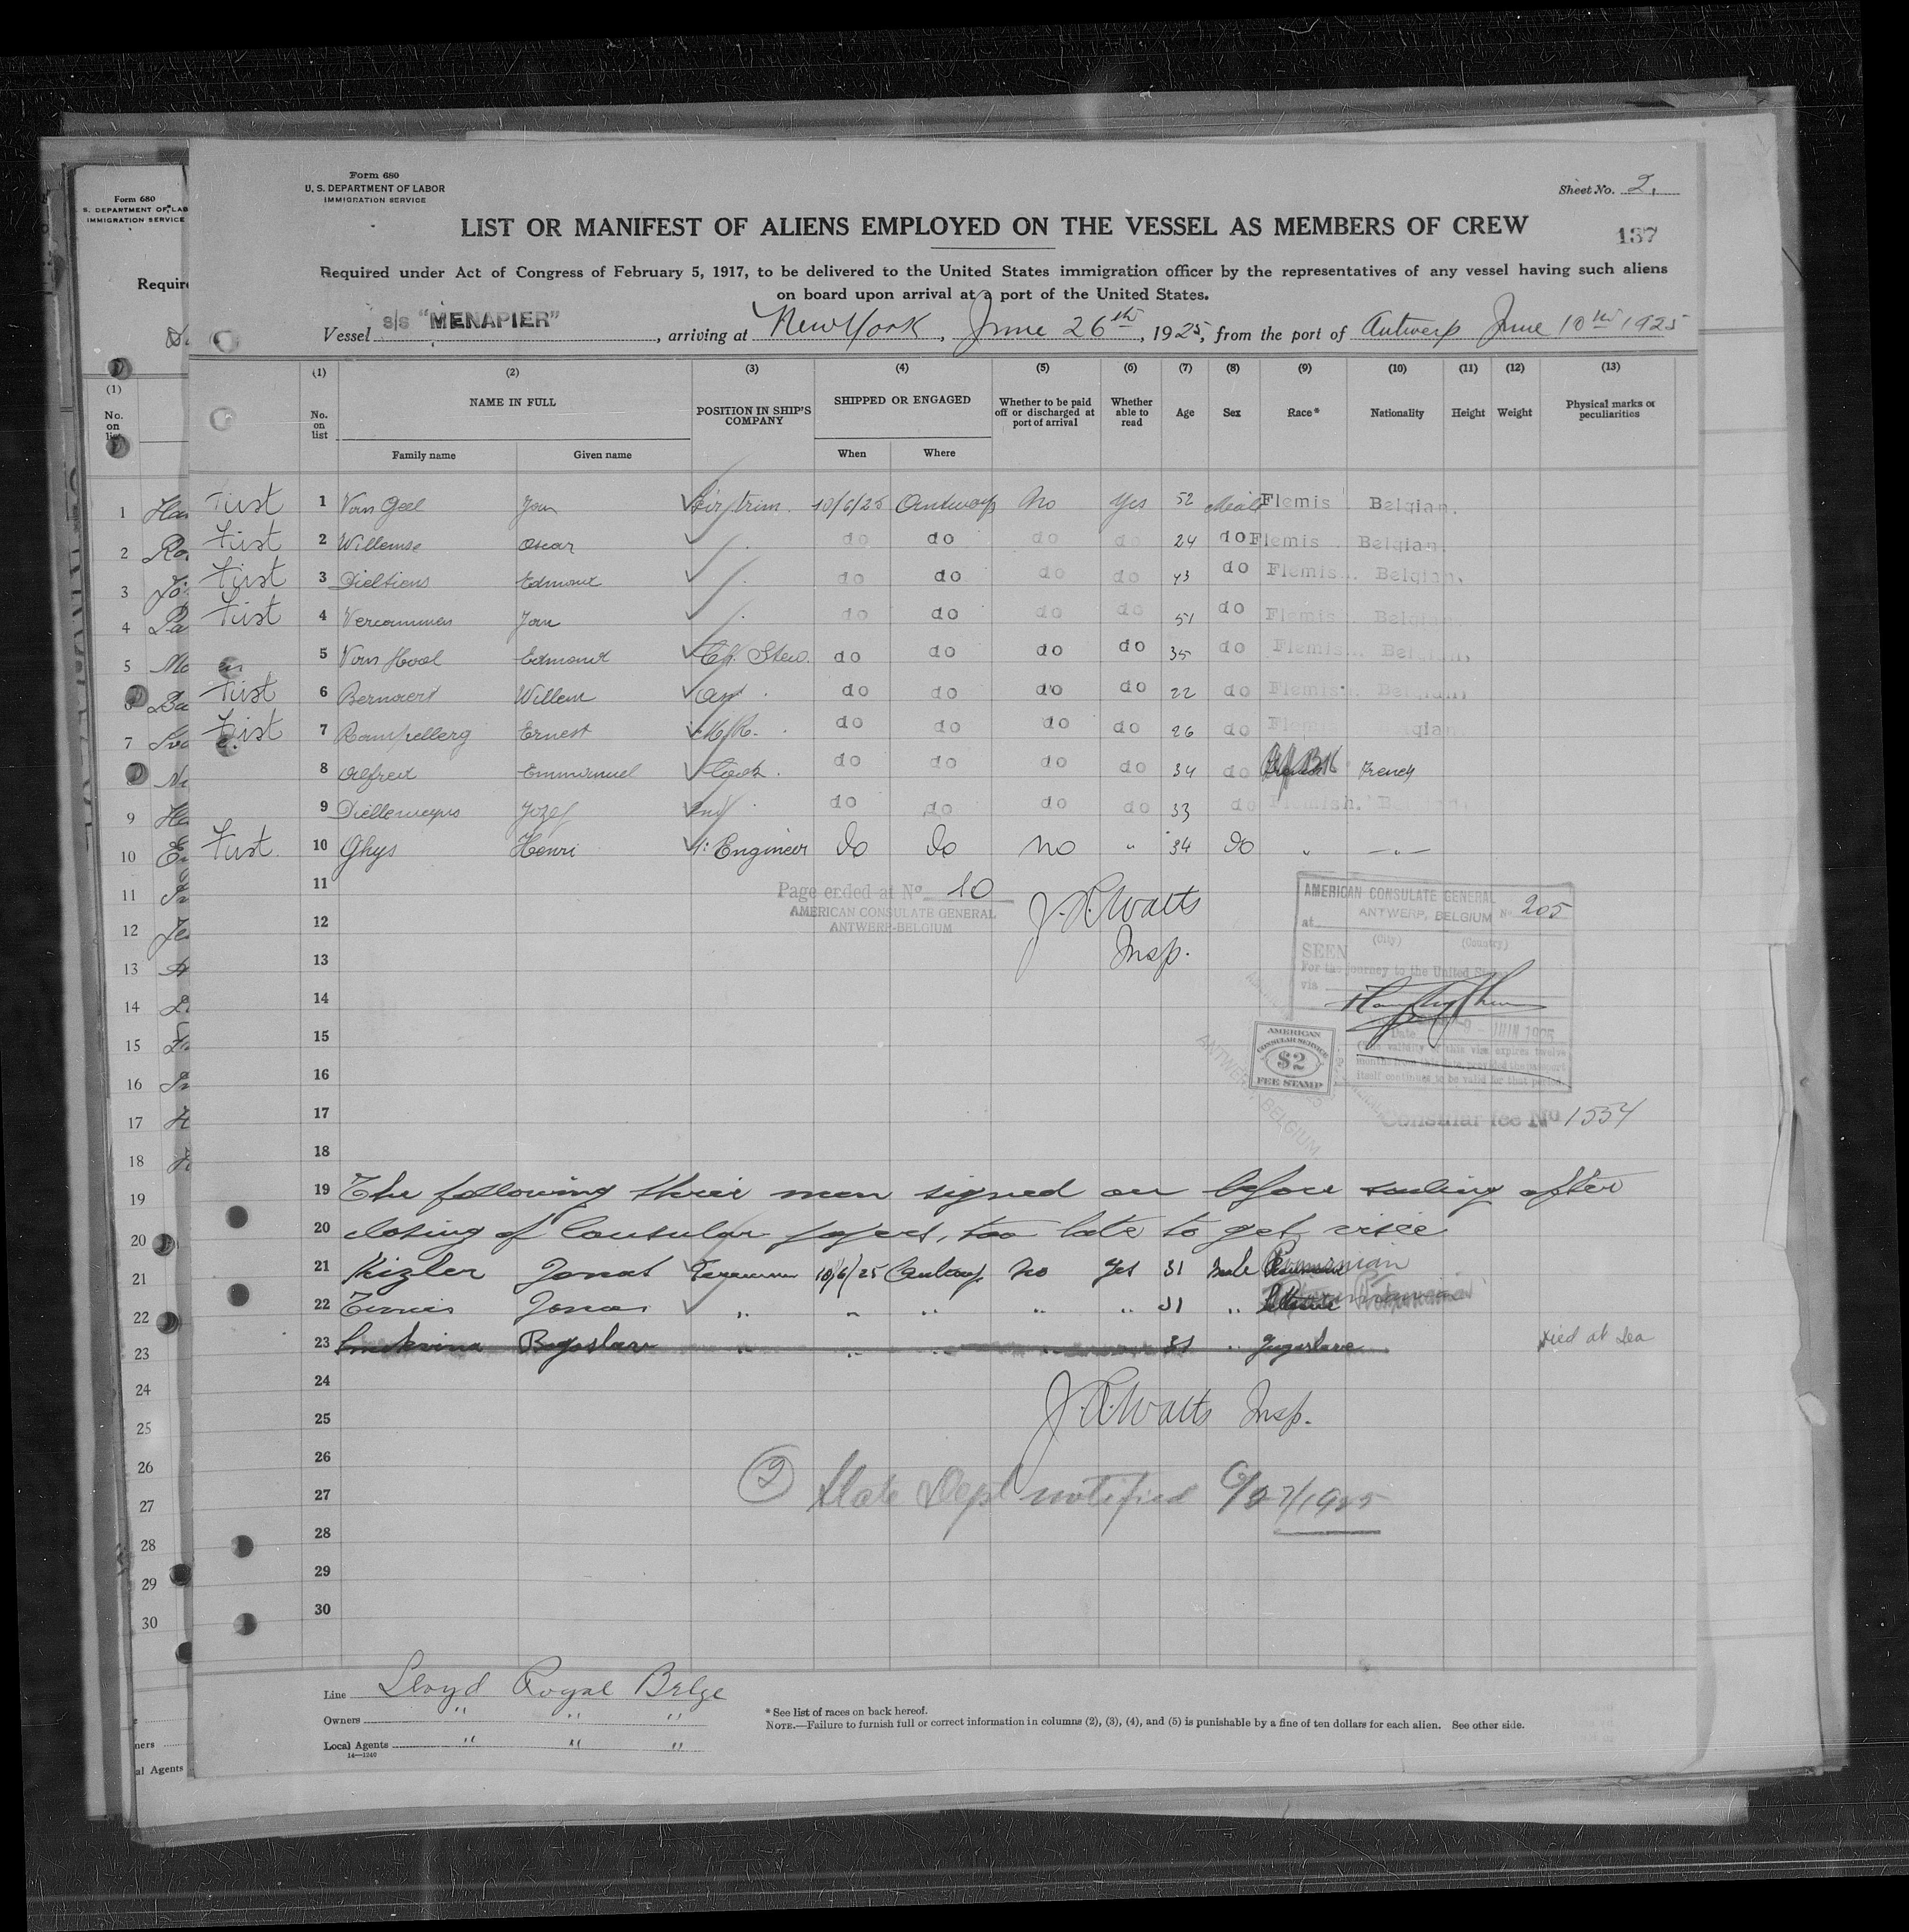 Form 680
U. S. DEPARTMENT OF LABOR
IMMIGRATION SERVICE
Sheet No. 2.
LIST OR MANIFEST OF ALIENS EMPLOYED ON THE VESSEL AS MEMBERS OF CREW
137
Required under Act of Congress of February 5, 1917, to be delivered to the United States immigration officer by the representatives of any vessel having such aliens
on board upon arrival at a port of the United States.
Vessel s/s "MENAPIER", arriving at New York, June 26th, 1925, from the port of Antwerp June 10th 1925
(1) (2) (3) (4) (5) (6) (7) (8) (9) (10) (11) (12) (13)
No. on list NAME IN FULL POSITION IN SHIP'S COMPANY SHIPPED OR ENGAGED Whether to be paid off or discharged at port of arrival Whether able to read Age Sex Race* Nationality Height Weight Physical marks or peculiarities
Family name Given name When Where
First 1 Van Geel Jan trim. 10/6/25 Antwerp No Yes 52 Male Flemis Belgian.
First 2 Willemse Oscar do do do do 24 do Flemis Belgian.
First 3 Dieltiens Edmond do do do do 43 do Flemis Belgian.
First 4 Vercammen Jan do do do do 51 do Flemis Belgian.
5 Van Hool Edmond Ch. Stew. do do do do 35 do Flemis Belgian.
First 6 Bernaert Willem do do do do 22 do Flemis Belgian.
First 7 Rampelberg Ernest do do do do 26 do Flemis Belgian.
8 Alfred Emmanuel Cook. do do do do 34 do French
9 Jozef do do do do 33 do Flemish.
First 10 Ghys Henri 1: Engineer Do Do No " 34 Do " -"-
11
Page ended at No. 10
AMERICAN CONSULATE GENERAL
ANTWERP-BELGIUM
J. R. Watts
Insp.
AMERICAN CONSULATE GENERAL
at ANTWERP, BELGIUM No 205
(City) (Country)
SEEN
For the journey to the United States
via
Date JUIN 1925
(The validity of this visa expires twelve
months from this date, provided the passport
itself continues to be valid for that period.
AMERICAN
CONSULAR SERVICE
$2
FEE STAMP
ANTWERP, BELGIUM
Consular fee No 1554
12
13
14
15
16
17
18
19 The following three men signed on before sailing after
20 closing of Consular papers, too late to get visée
21 Kizler Jonas 10/6/25 Antwerp No Yes 31 Male Roumanian
22 Jonas " " " " " 31 "
23 Smokvina Bogoslav " " " " 31 " Jugoslave Died at Sea
24
25 J. R. Watts Insp.
26
27 2 State Dept notified 6/27/1925
28
29
30
Line Lloyd Royal Belge
Owners " " "
Local Agents " " "
14—1240
* See list of races on back hereof.
NOTE.—Failure to furnish full or correct information in columns (2), (3), (4), and (5) is punishable by a fine of ten dollars for each alien. See other side.